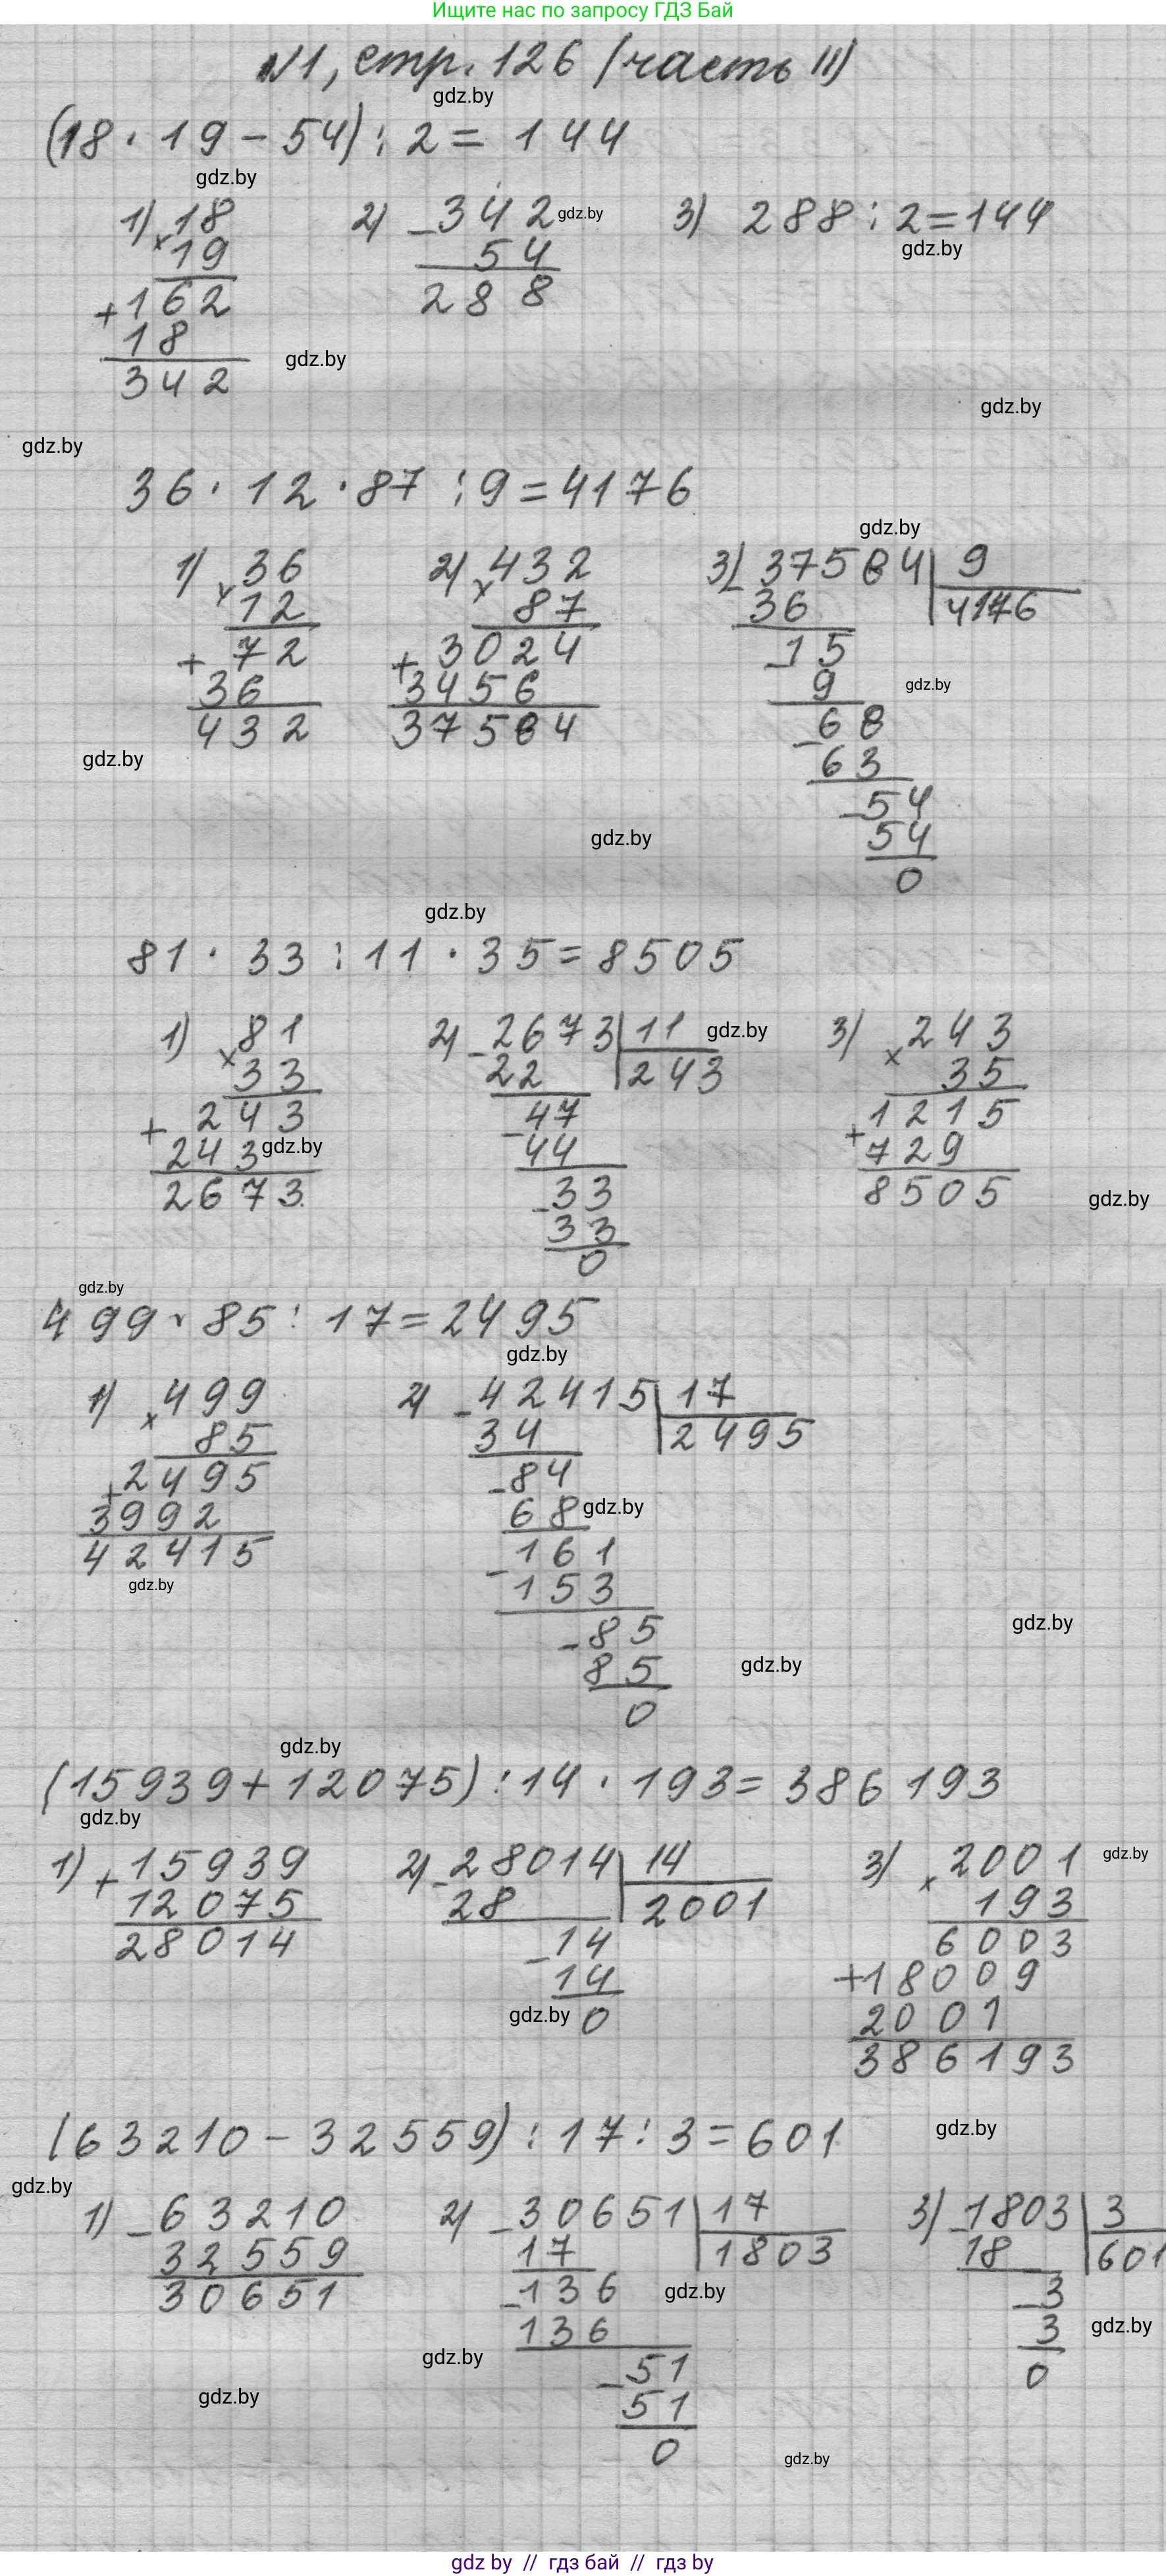 Ищите нас по запросу ГДЗ Бай
№1, стр. 126 (часть II)
gdz.by
(18 · 19 - 54) : 2 = 144
gdz.by
1) × 18   2) - 342   gdz.by   3) 288 : 2 = 144
19   54   gdz.by
+ 162   288
18
342   gdz.by
gdz.by
gdz.by
36 · 12 · 87 : 9 = 4176
gdz.by
1) × 36   2) × 432   3) - 37584 | 9
12   87   36   4176
+ 72   + 3024   - 15
36   3456   9   gdz.by
432   37584   - 68
gdz.by   63
- 54
gdz.by   54
0
gdz.by
81 · 33 : 11 · 35 = 8505
1) × 81   2) - 2673 | 11   gdz.by   3) × 243
33   22   243   35
+ 243   - 47   + 1215
243   gdz.by   44   729
2673   - 33   8505   gdz.by
33
0
gdz.by
499 · 85 : 17 = 2495
gdz.by
1) × 499   2) - 42415 | 17
85   34   2495
+ 2495   - 84
3992   68   gdz.by
42415   - 161
gdz.by   153
- 85   gdz.by
85   gdz.by
0
gdz.by
(15939 + 12075) : 14 · 193 = 386193
gdz.by
1) + 15939   2) - 28014 | 14   3) × 2001   gdz.by
12075   28   2001   193
28014   - 14   6003
14   + 18009
gdz.by   0   2001
386193
(63210 - 32559) : 17 : 3 = 601   gdz.by
gdz.by
1) - 63210   2) - 30651 | 17   3) - 1803 | 3
32559   17   1803   18   601
30651   - 136   gdz.by   - 3
136   3   gdz.by
gdz.by   - 51   0
gdz.by   51
0   gdz.by
gdz by // гдз бай // гдз by